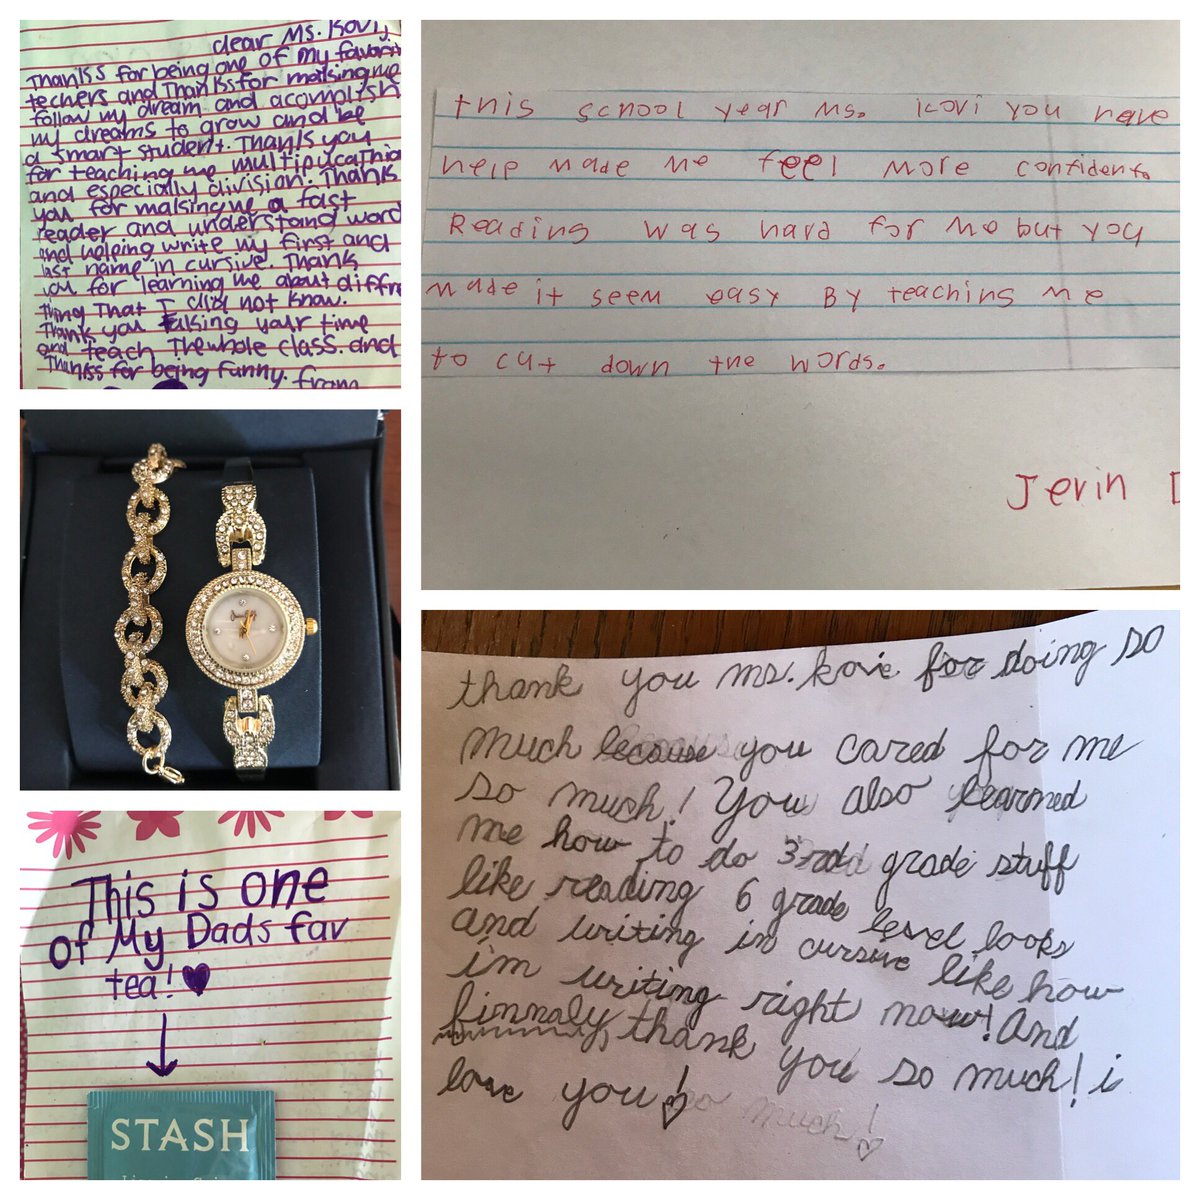 dear Ms. Kovi,
Thanks for being one of my favorit
techers and Thanks for making me
follow my dream and acomplish
my dreams to grow and be
a smart student. Thanks you
for teaching me multiplucathio
and especially division. Thank
you for making me a fast
reader and understand word
and helping write my first and
last name in cursive. Thank
you for learning me about diffre
thing That I did not know.
Thank you taking your time
and teach The whole class. and
Thanks for being funny. from
this school year Ms. Kovi you have
help made me feel more confident.
Reading was hard for me but you
made it seem easy By teaching me
to cut down the words.
Jerin
This is one
of My Dads fav
tea!
STASH
thank you ms. kovie for doing so
much because you cared for me
so much! You also learned
me how to do 3rd grade stuff
like reading 6 grade level books
and writing in cursive like how
i'm writing right now! And
finnaly, thank you so much! i
love you!
so much!